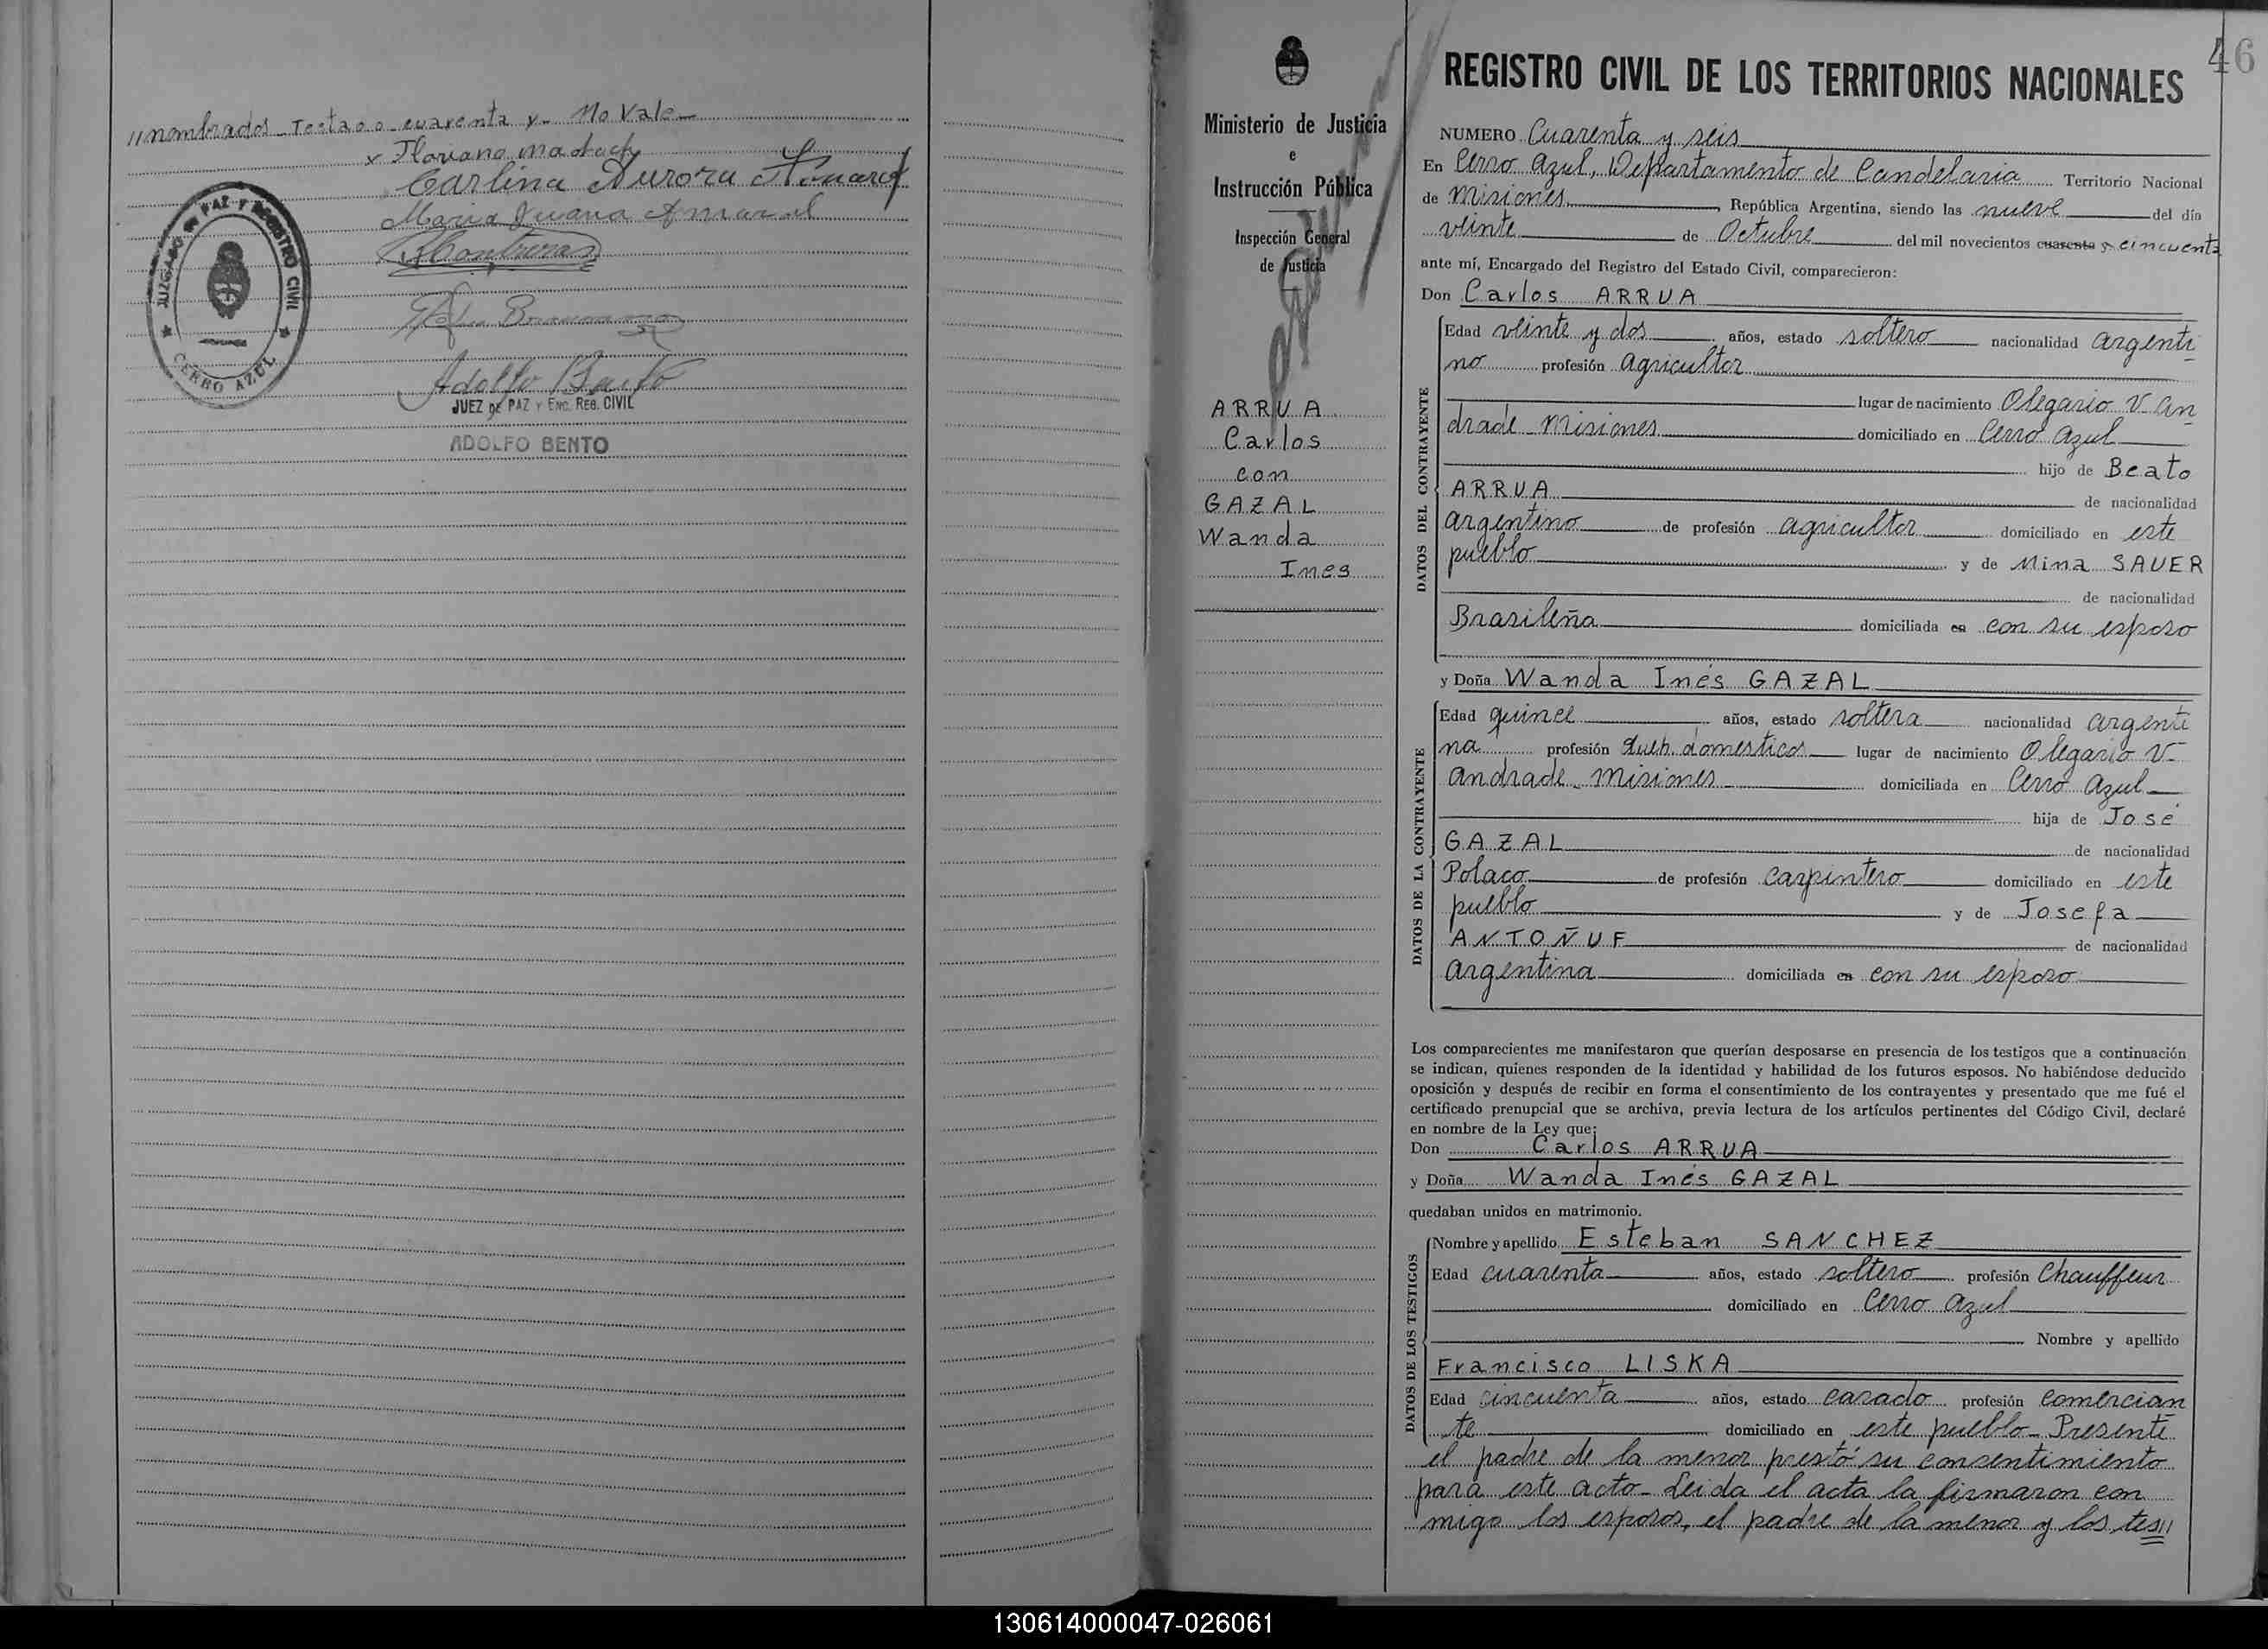 //nombrados_Testado_cuarenta y_ No Vale_
x Floriano
Carlina Aurora
Maria Juana Amaral
Contreras
JUZGADO DE PAZ Y REGISTRO CIVIL
CERRO AZUL
Adolfo Bento
JUEZ DE PAZ Y ENC. REG. CIVIL
ADOLFO BENTO
46
Ministerio de Justicia
e
Instrucción Pública
Inspección General
de Justicia
ARRUA
Carlos
con
GAZAL
Wanda
Ines
REGISTRO CIVIL DE LOS TERRITORIOS NACIONALES
NUMERO Cuarenta y seis
En Cerro Azul, Departamento de Candelaria Territorio Nacional
de Misiones, República Argentina, siendo las nueve del día
veinte de Octubre del mil novecientos cuarenta y cincuenta
ante mí, Encargado del Registro del Estado Civil, comparecieron:
Don Carlos ARRUA
DATOS DEL CONTRAYENTE
Edad veinte y dos años, estado soltero nacionalidad argenti
no profesión agricultor
lugar de nacimiento Olegario V. An
drade Misiones domiciliado en Cerro Azul
hijo de Beato
ARRUA de nacionalidad
argentino de profesión agricultor domiciliado en este
pueblo y de Mina SAUER
de nacionalidad
Brasileña domiciliada en con su esposo
y Doña Wanda Inés GAZAL
DATOS DE LA CONTRAYENTE
Edad quince años, estado soltera nacionalidad argenti
na profesión Queh. domesticos lugar de nacimiento Olegario V-
Andrade_Misiones domiciliada en Cerro Azul
hija de José
GAZAL de nacionalidad
Polaco de profesión carpintero domiciliado en este
pueblo y de Josefa
ANTOÑUF de nacionalidad
argentina domiciliada en con su esposo
Los comparecientes me manifestaron que querían desposarse en presencia de los testigos que a continuación
se indican, quienes responden de la identidad y habilidad de los futuros esposos. No habiéndose deducido
oposición y después de recibir en forma el consentimiento de los contrayentes y presentado que me fué el
certificado prenupcial que se archiva, previa lectura de los artículos pertinentes del Código Civil, declaré
en nombre de la Ley que:
Don Carlos ARRUA
y Doña Wanda Inés GAZAL
quedaban unidos en matrimonio.
DATOS DE LOS TESTIGOS
Nombre y apellido Esteban SANCHEZ
Edad cuarenta años, estado soltero profesión Chauffeur
domiciliado en Cerro Azul
Nombre y apellido
Francisco LISKA
Edad cincuenta años, estado casado profesión comercian
te domiciliado en este pueblo_ Presente
el padre de la menor prestó su consentimiento
para este acto_ Leida el acta la firmaron con
migo los esposos, el padre de la menor y los tes//
130614000047-026061